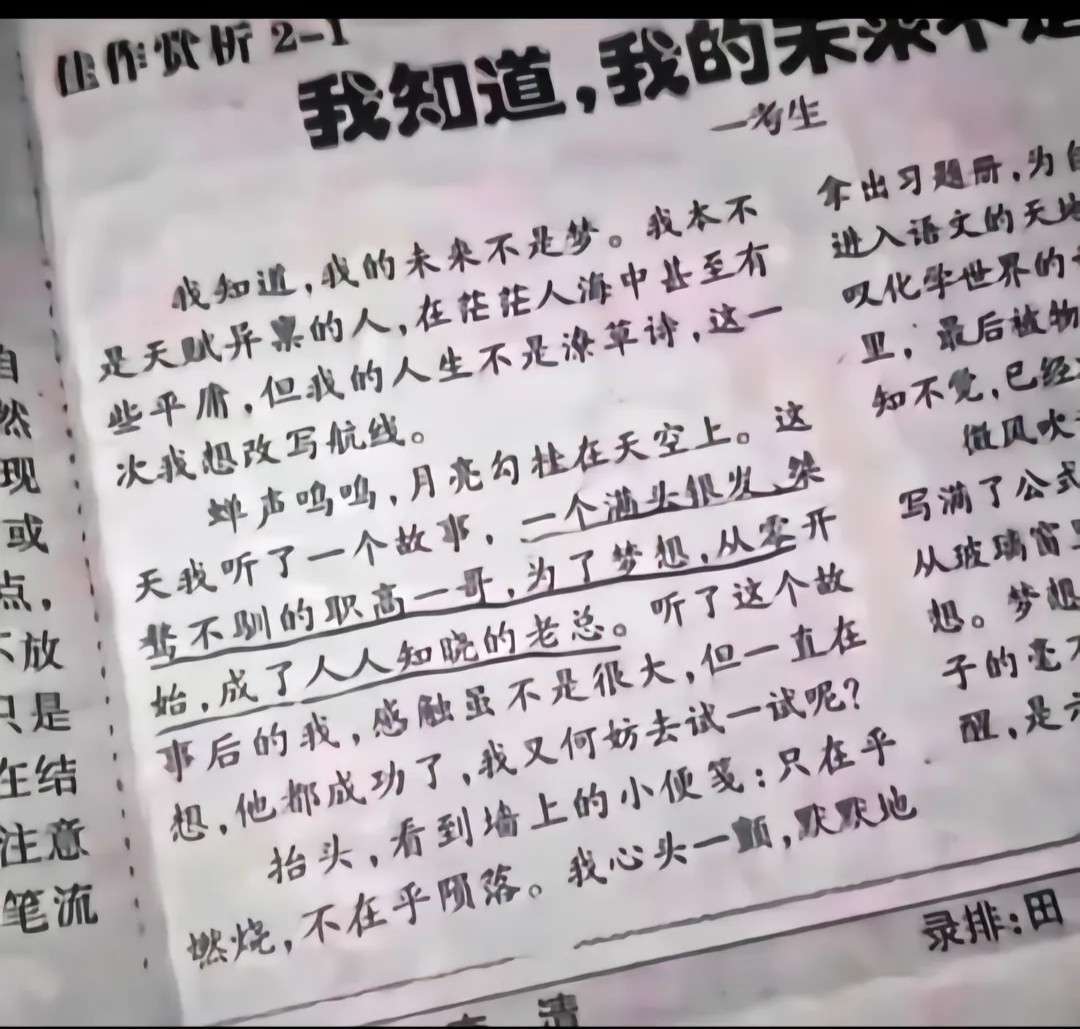 佳作赏析 2-1
我知道，我的未来不是
一考生
我知道，我的未来不是梦。我本不
是天赋异禀的人，在茫茫人海中甚至有
些平庸，但我的人生不是潦草诗，这一
次我想改写航线。
蝉声鸣鸣，月亮勾挂在天空上。这
天我听了一个故事，一个满头银发、桀
骜不驯的职高一哥，为了梦想，从零开
始，成了人人知晓的老总。听了这个故
事后的我，感触虽不是很大，但一直在
想，他都成功了，我又何妨去试一试呢？
抬头，看到墙上的小便笺：只在乎
燃烧，不在乎陨落。我心头一颤，默默地
拿出习题册，为自
进入语文的天地
叹化学世界的
里，最后被物
知不觉，已经
微风吹
写满了公式
从玻璃窗里
想。梦想
子的毫不
醒，是
自
然
现
或
点，
不放
只是
在结
注意
笔流
录排：田
清